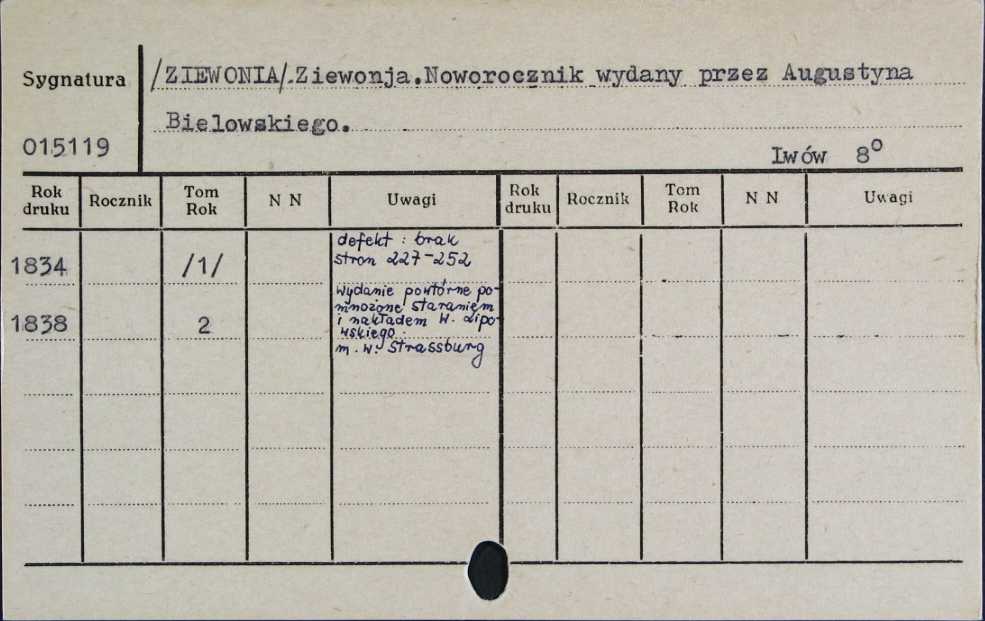 Sygnatura /ZIEWONIA/.Ziewonja.Noworocznik wydany przez Augustyna
Bielowskiego.
015119 Lwów 8°
Rok druku Rocznik Tom Rok N N Uwagi Rok druku Rocznik Tom Rok N N Uwagi
defekt : brak
1834 /1/ stron 227-252
wydanie powtórne po-
mnożone staraniem
1838 2 i nakładem W. Lipo-
wskiego.
m. w. Strassburg